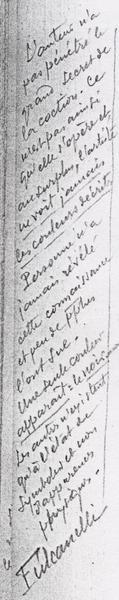 L'auteur n'a
pas pénétré le
grand secret de
la coction. Ce
n'est pas ainsi
qu'elle s'opère et,
au surplus, l'artiste
ne voit jamais
les couleurs décrites.
Personne n'a
jamais révélé
cette connaissance
et peu de Pphes
l'ont sue.
Une seule couleur
apparaît. le noir
Les autres n'existent
qu'à l'état de
symboles et non
d'apparences
physiques.
Fulcanelli